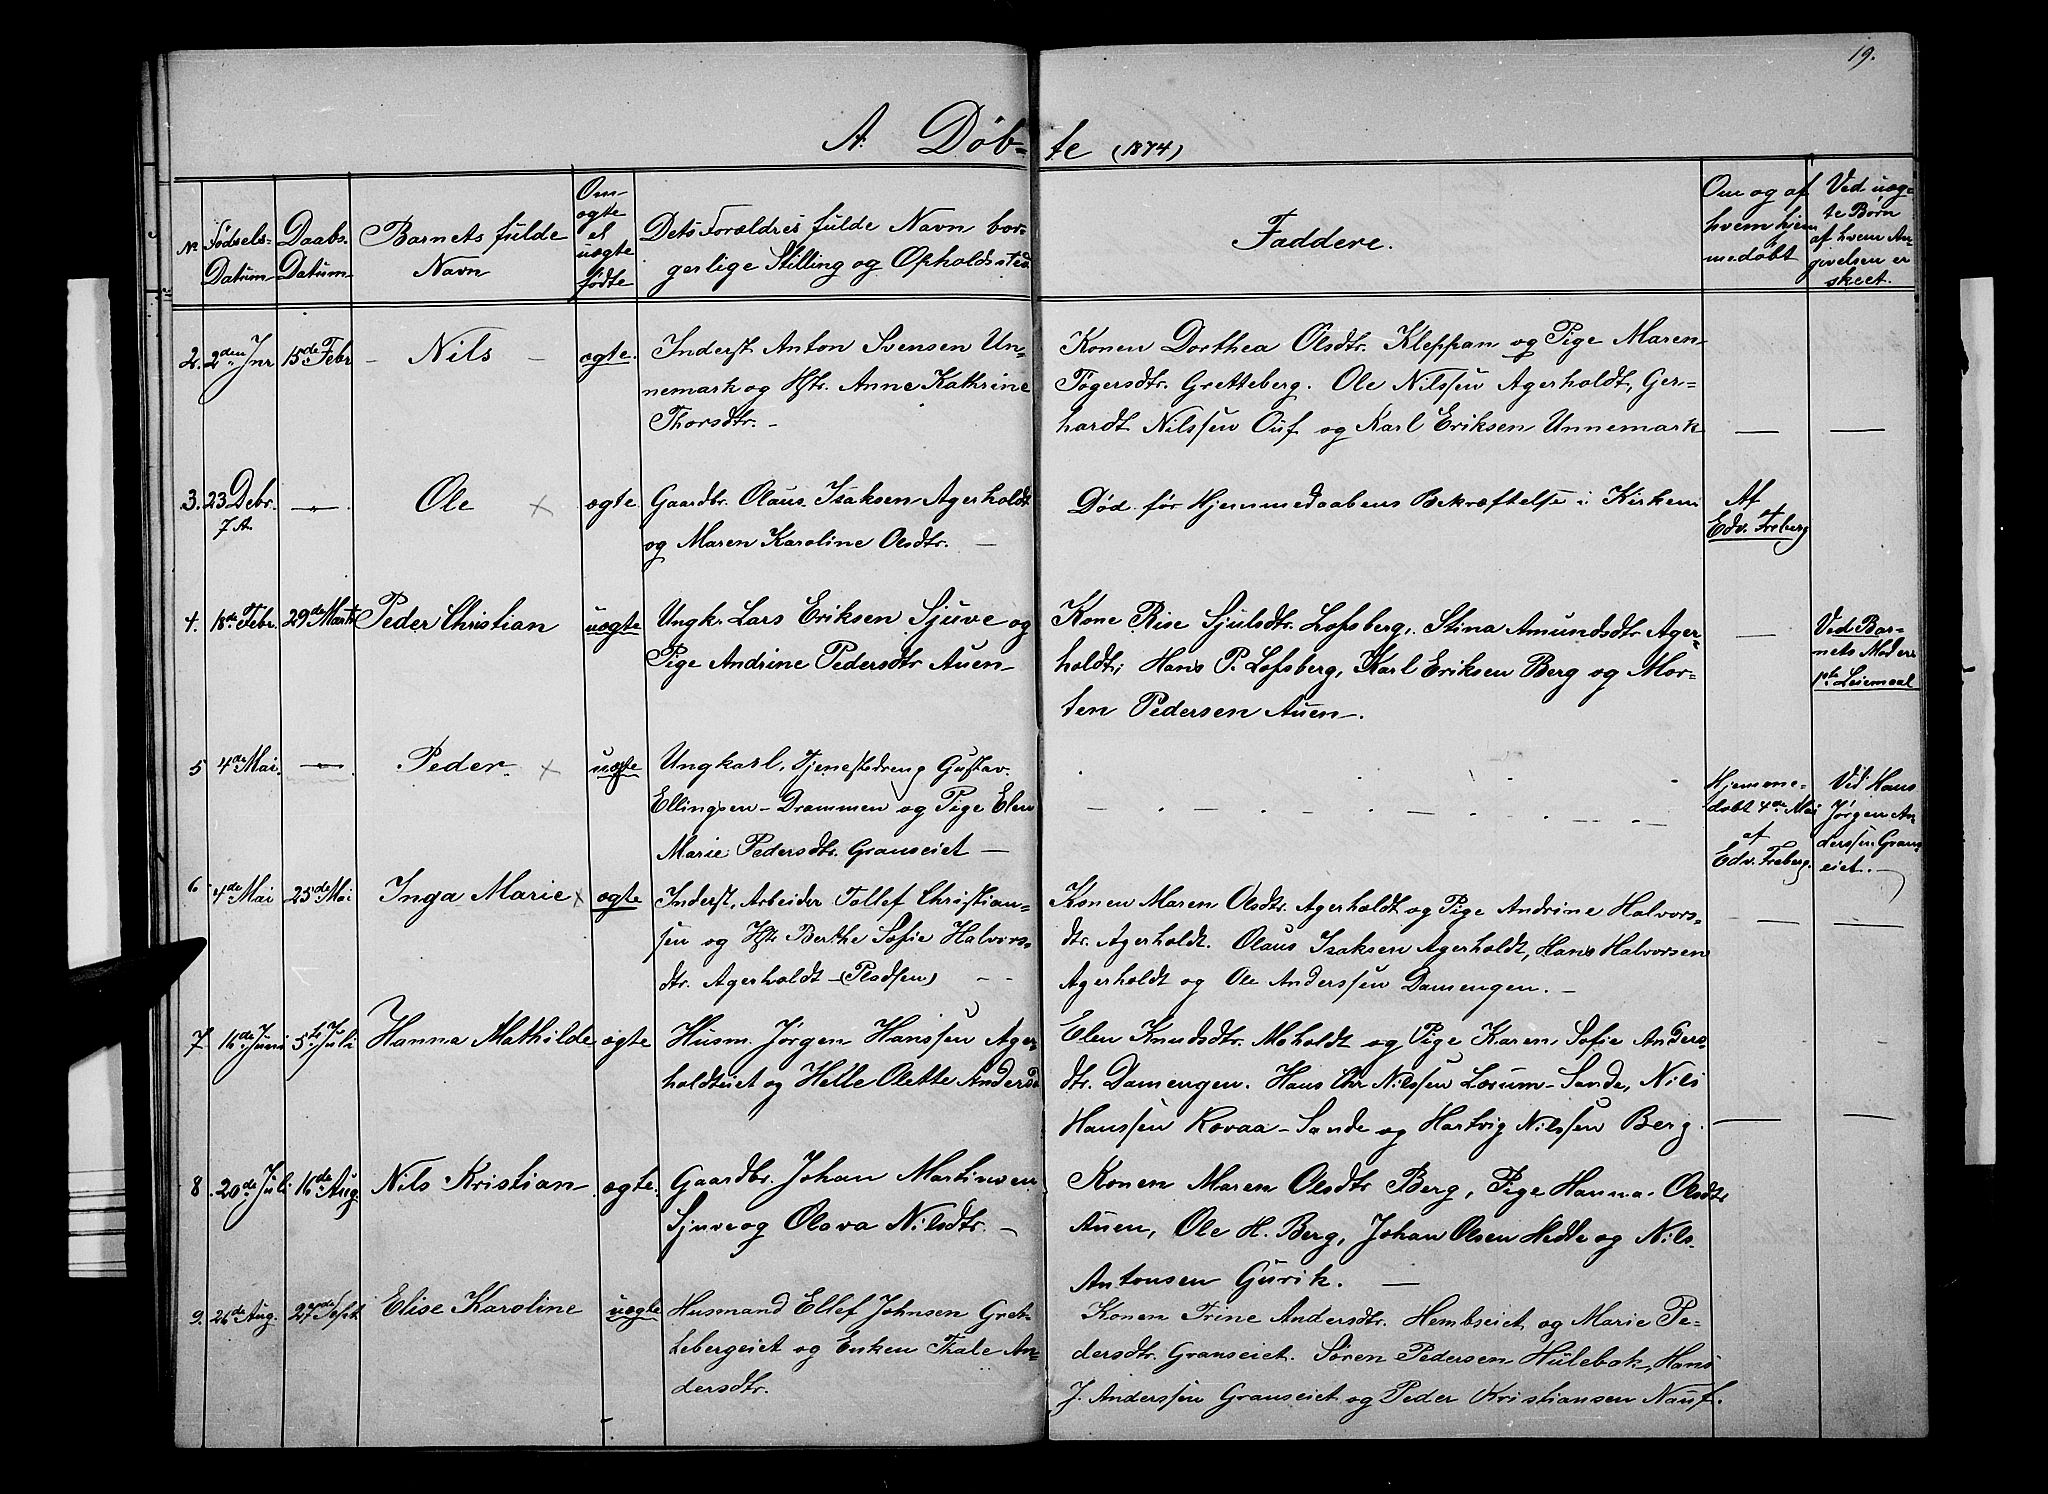 19.
A. Døb- te (1874)
Nr.
Fødsels-
Datum
Daabs-
Datum
Barnets fulde
Navn
Om
ægte
el
uægte
fødte
Dets Forældres fulde Navn bor-
gerlige Stilling og Opholdssted
Faddere.
Om og af
hvem hjem
medøbt
Ved uæg-
te Børn
af hvem An-
givelsen er
skeet.
2. 2den Jnr 15de Febr – Nils – ægte.
Inderst Anton Svensen Un-
nemark og Hstr. Anne Kathrine
Thorsdtr. –
Konen Dorthea Olsdtr. Kleppan og Pige Maren
Togersdtr. Gretteberg. Ole Nilssen Agerholdt, Ger-
hardt Nilssen Ouf og Karl Eriksen Unnemark
— —
3. 23 Debr. —„— Ole × ægte
7 A.
Gaardbr. Olaus Isaksen Agerholdt
og Maren Karoline Olsdtr. —
Død før Hjemmedaabens Bekræftelse i Kirken
Af
Edv. Freberg
4. 18de Febr. 29de Marts Peder Christian uægte
Ungk. Lars Eriksen Sjuve og
Pige Andrine Pedersdtr Auen–
Kone Rise Sjulsdtr. Lofsberg, Stina Amundsdtr Ager-
holdt; Hans P. Lofsberg, Karl Eriksen Berg og Mor-
ten Pedersen Auen–.
—
Ved Bar-
nets Moder
1ste Leiemaal
5 4de Mai. —„— Peder. × uægte
Ungkarl, Tjenestedreng Gustav
Ellingsen – Drammen og Pige Elen
Marie Pedersdtr. Granseiet —
Hjemme-
døbt 4de Mai
af
Edv. Freberg.
Ved Hans
Jørgen An-
derssen Grans-
eiet.
6 4de Mai 25de Mai Inga Marie × ægte
Inderst, Arbeider Tollef Christian-
sen og Hstr Berthe Sofie Halvors-
dtr. Agerholdt – (Pladsen) – –
Konen Maren Olsdtr. Agerholdt og Pige Andrine Halvors-
dtr. Agerholdt. Olaus Isaksen Agerholdt, Hans Halvorsen
Agerholdt og Ole Anderssen Damengen. –
— —
7 16de Juni 5te Juli Hanna Mathilde ægte
Husm. Jørgen Hanssen Ager-
holdteiet og Helle Olette Andersd
Elen Knudsdtr. Moholdt og Pige Karen Sofie Anders-
dtr. Damengen. Hans Chr Nilssen Lærum – Sande, Nils
Hanssen Rovaa – Sande og Hartvig Nilssen Berg.
— —
8. 20de Juli 16de Aug. Nils Kristian ægte.
Gaardbr. Johan Martinsen
Sjuve og Olava Nilsdtr. –
Konen Maren Olsdtr Berg, Pige Hanna Olsdtr
Auen, Ole H. Berg, Johan Olsen Hedte og Nils
Antonsen Gurik. —
9. 26de Aug. 27nde Sept. Elise Karoline uægte
Husmand Ellef Johnsen Gret-
tebergeiet og Enken Thale An-
dersdtr.
Konen Trine Andersdtr. Hembseiet og Marie Pe-
dersdtr. Granseiet. Søren Pedersen Hulebak, Hans
J. Anderssen Granseiet og Peder Kristiansen Nauf.